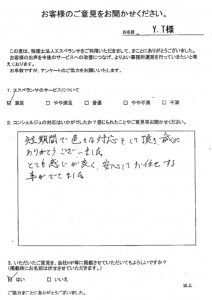 お客様のご意見をお聞かせください。
お名前 Y.T様
この度は、税理士法人エスペランサをご利用いただきまして、まことにありがとうございました。
お客様のお声を今後のサービスへの改善につなげ、よりよい事務所運営を行っていきたいと考えております。
お手数ですが、アンケートのご協力をお願いいたします。
1. エスペランサのサービスについて
満足 やや満足 普通 やや不満 不満
2. コンシェルジュの対応はいかがでしたか？感じられたことやご意見等お聞かせください。
短期間で色々な対応をして頂き誠に
ありがとうございました
とても感じが良く、安心してお任せする
事ができました
3. いただいたご意見を、当社HP等に掲載させていただいてもよろしいですか？
（掲載時にお名前は伏せさせていただきます。）
はい いいえ
以上
ご協力まことにありがとうございました。